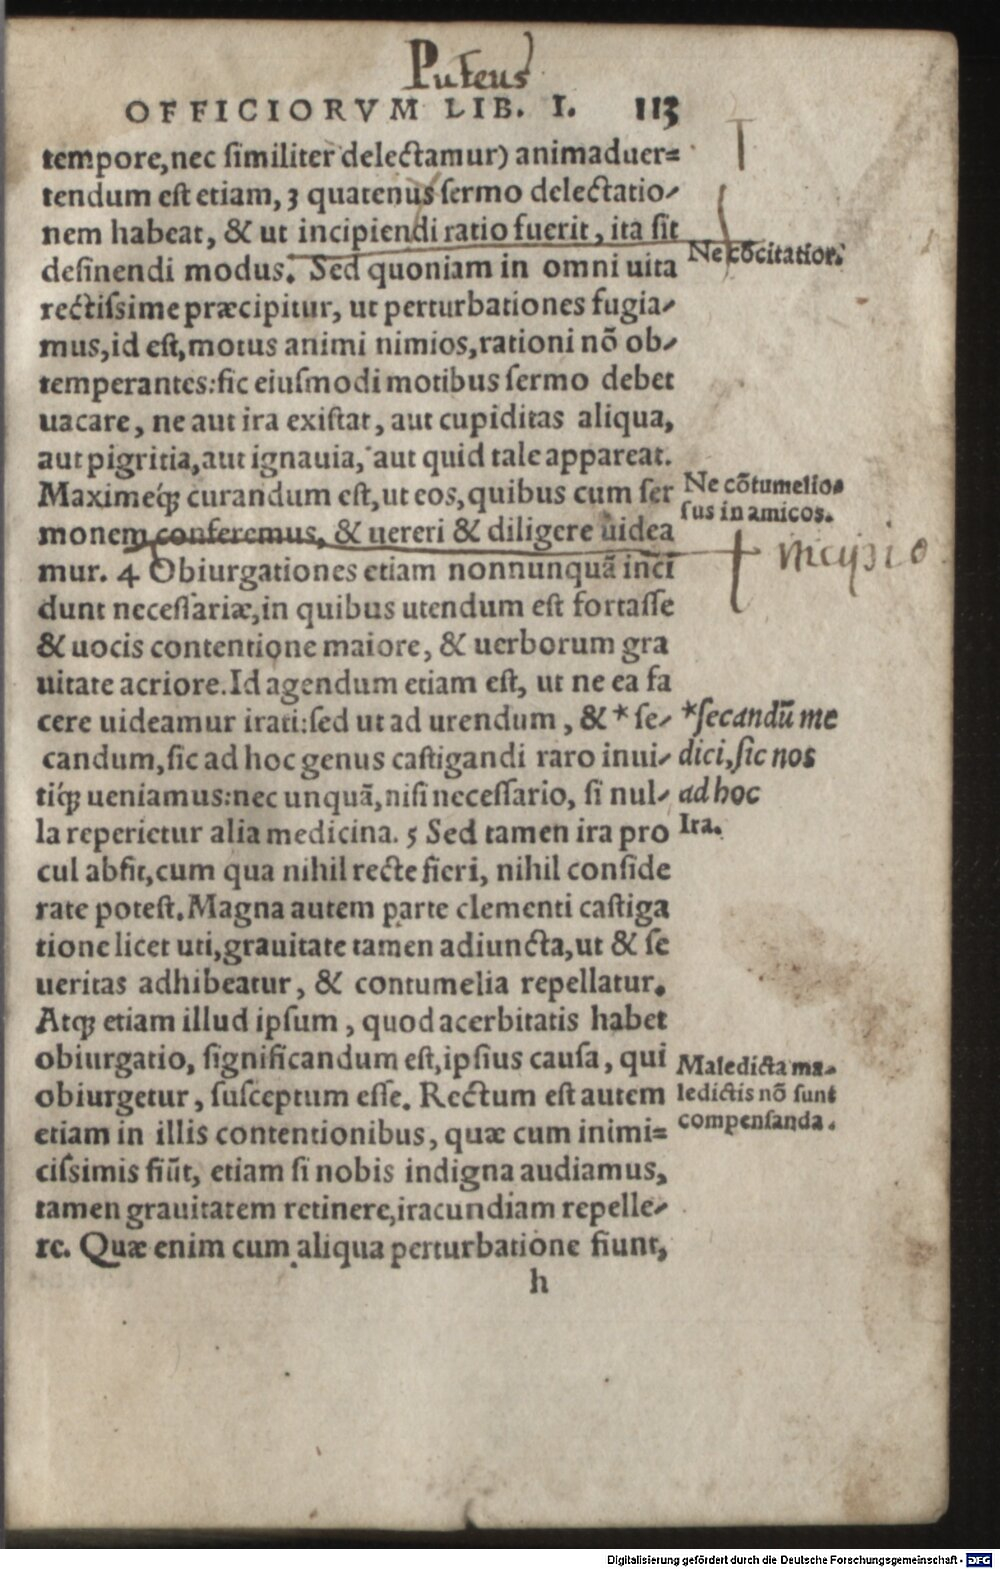 Puteus
OFFICIORVM LIB. I. 113
tempore, nec similiter delectamur) animaduer=
tendum est etiam, 3 quatenus sermo delectatio-
nem habeat, & ut incipiendi ratio fuerit, ita sit
Ne cōcitatior.
desinendi modus. Sed quoniam in omni uita
rectissime præcipitur, ut perturbationes fugia-
mus, id est, motus animi nimios, rationi nō ob-
temperantes: sic eiusmodi motibus sermo debet
uacare, ne aut ira existat, aut cupiditas aliqua,
aut pigritia, aut ignauia, aut quid tale appareat.
Maximeq́; curandum est, ut eos, quibus cum ser
Ne cōtumelio-
sus in amicos.
monem conferemus, & uereri & diligere uidea
mur. 4 Obiurgationes etiam nonnunquā inci
dunt necessariæ, in quibus utendum est fortasse
& uocis contentione maiore, & uerborum gra
uitate acriore. Id agendum etiam est, ut ne ea fa
cere uideamur irati: sed ut ad urendum, & * se-
*secandū me
candum, sic ad hoc genus castigandi raro inui-
dici, sic nos
tiq́; ueniamus: nec unquā, nisi necessario, si nul-
ad hoc
la reperietur alia medicina. 5 Sed tamen ira pro
Ira.
cul absit, cum qua nihil recte fieri, nihil conside
rate potest. Magna autem parte clementi castiga
tione licet uti, grauitate tamen adiuncta, ut & se
ueritas adhibeatur, & contumelia repellatur.
Atq; etiam illud ipsum, quod acerbitatis habet
obiurgatio, significandum est, ipsius causa, qui
Maledicta ma-
obiurgetur, susceptum esse. Rectum est autem
ledictis nō sunt
etiam in illis contentionibus, quæ cum inimi=
compensanda.
cissimis fiūt, etiam si nobis indigna audiamus,
tamen grauitatem retinere, iracundiam repelle-
re. Quæ enim cum aliqua perturbatione fiunt,
h
Digitalisierung gefördert durch die Deutsche Forschungsgemeinschaft - DFG